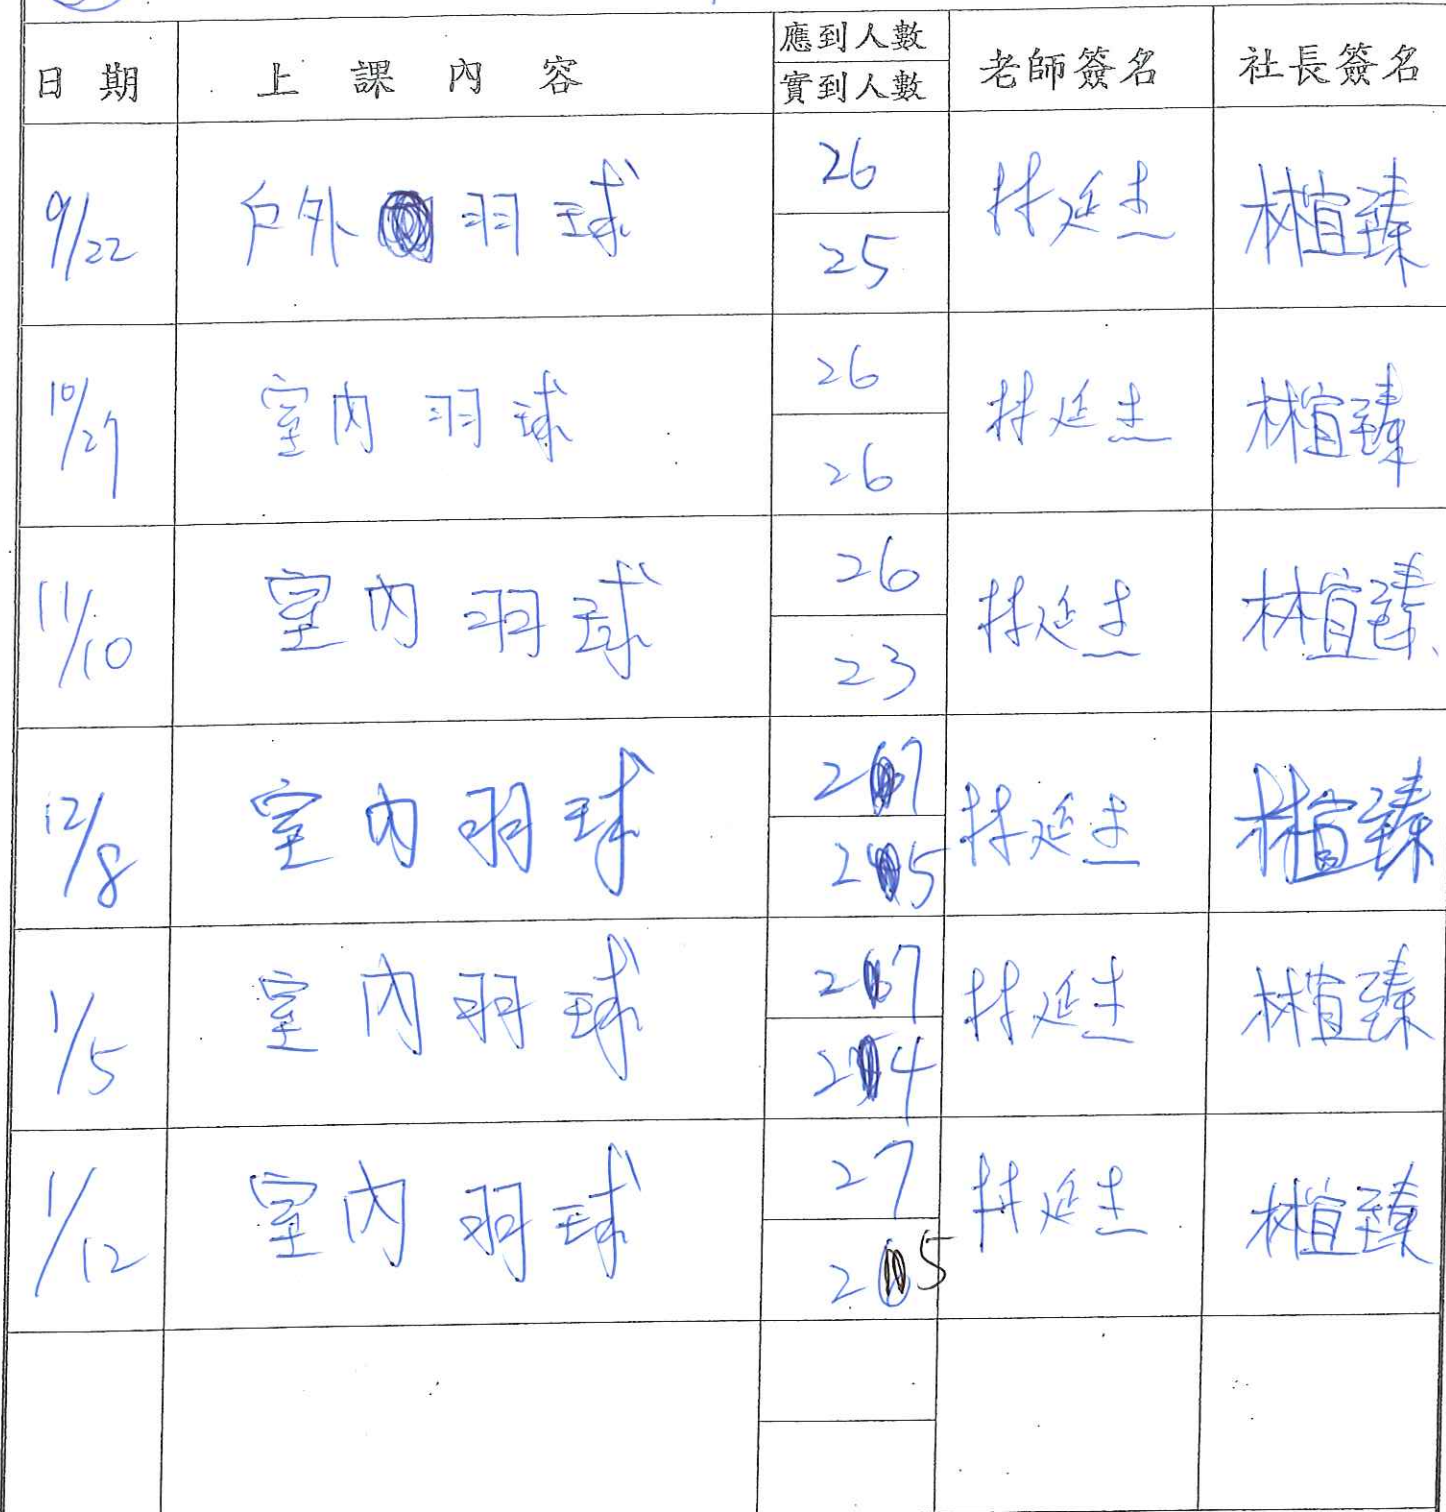 日期 上課內容 應到人數 實到人數 老師簽名 社長簽名
9/22 戶外羽球 26 25 林延杰 林宜臻
10/27 室內羽球 26 26 林延杰 林宜臻
11/10 室內羽球 26 23 林延杰 林宜臻
12/8 室內羽球 27 25 林延杰 林宜臻
1/5 室內羽球 27 24 林延杰 林宜臻
1/12 室內羽球 27 25 林延杰 林宜臻